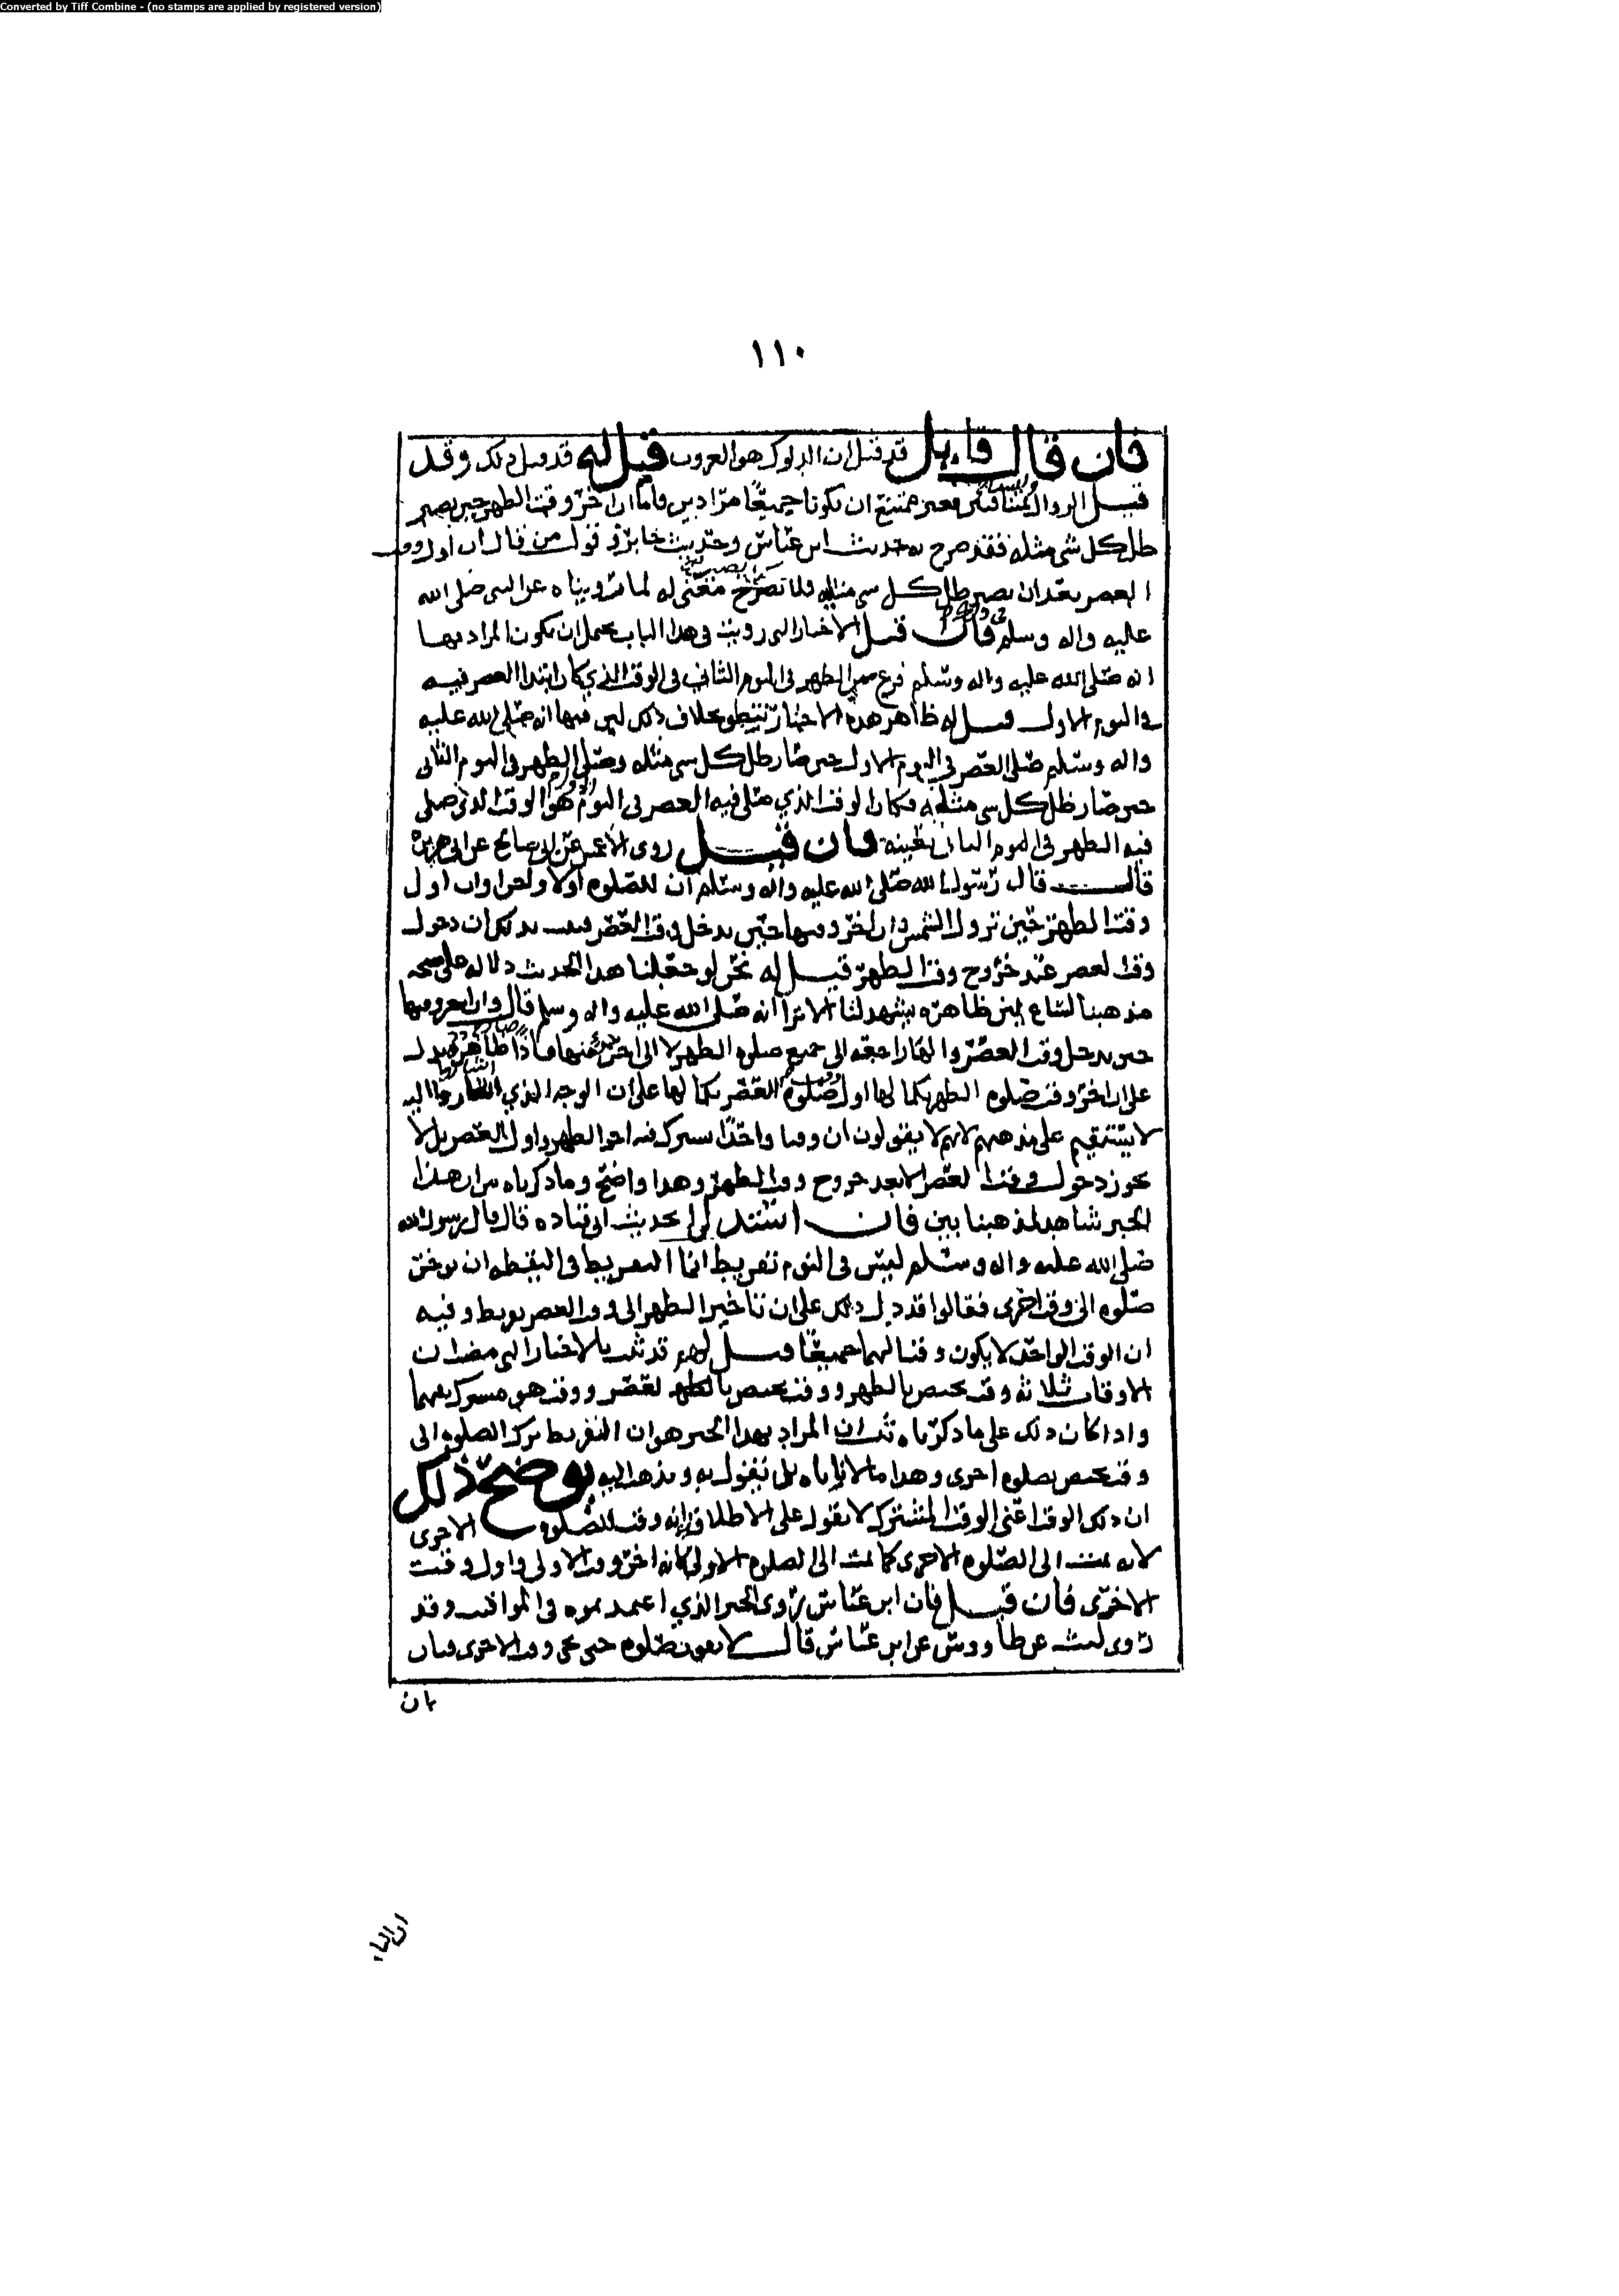 Converted by Tiff Combine - (no stamps are applied by registered version)
١١٠
فان قال قايل قد قيل ان الدلوك هو الغروب قيل له قد قيل ذلك وقد
قيل الزوال فغير ممتنع ان يكونا جميعًا مرادين واما ان اخر وقت الظهر حين يصير
ظل كل شي مثله فقد صرح به حديث ابن عباس وحديث جابر وقول من قال ان اول وقت
العصر بعد ان يصير ظل كل شي مثليه فلا معنى له لما رويناه عن النبي صلى الله
عليه واله وسلم فان قيل الاخبار التي رويت في هذا الباب يحتمل ان يكون المراد بها
انه صلى الله عليه واله وسلم فرغ من الظهر في اليوم الثاني في الوقت الذي كان ابتدا العصر فيه
في اليوم الاول قيل له ظاهر هذه الاخبار ينطق بخلاف ذلك لان فيها انه صلى الله عليه
واله وسلم صلى العصر في اليوم الاول حين صار ظل كل شي مثله وصلى الظهر في اليوم الثاني
حين صار ظل كل شي مثله فكان الوقت الذي صلى فيه العصر في اليوم الاول هو الوقت الذي صلى
فيه الظهر في اليوم الثاني بعينه فان قيل روى الاعمش عن ابي صالح عن ابي هريرة
قال قال رسول الله صلى الله عليه واله وسلم ان للصلوه اولا واخرا وان اول
وقت الظهر حين تزول الشمس وان اخر وقتها حين يدخل وقت العصر فثبت بذلك ان دخول
وقت العصر عند خروج وقت الظهر قيل له نحن لو جعلنا هذا الحديث دلاله على صحه
مذهبنا لساغ لان ظاهره يشهد لنا الا ترا انه صلى الله عليه واله وسلم قال وان اخر وقتها
حين يدخل وقت العصر والها راجعه الى جميع صلوه الظهر لا الى اخر جزء منها فاذًا ظاهره يدل
على ان اخر وقت صلوه الظهر بكمالها اول وقت صلوه العصر بكمالها على ان الوجه الذي اشاروا اليه
لا يستقيم على مذهبهم لانهم لا يقولون ان وقتا واحدًا يشترك فيه اخر الظهر واول العصر بل لا
يجوز دخول وقت العصر الا بعد خروج وقت الظهر وهذا واضح وما ذكرناه من ان هذا
الخبر شاهد لمذهبنا بين فان استند الى حديث ابي قتاده قال قال رسول الله
صلى الله عليه واله وسلم ليس في النوم تفريط انما التفريط في اليقظه ان يوخر
صلوه الى وقت اخرى فقالوا قد دل ذلك على ان تاخير الظهر الى وقت العصر تفريط وفيه
ان الوقت الواحد لا يكون وقتا لهما جميعًا قيل لهم قد ثبت بالاخبار التي مضت ان
الاوقات ثلاثه وقت يختص بالظهر ووقت يختص بالعصر ووقت هو مشترك بينهما
واذا كان ذلك على ما ذكرناه ثبت ان المراد بهذا الخبر هو ان التفريط ترك الصلوه الى
وقت يختص بصلوه اخرى وهذا مما لا ناباه بل نقول به ونذهب اليه يوضح ذلك
ان ذلك الوقت اعني الوقت المشترك لا يقول على الاطلاق انه وقت للصلوه الاخرى
لانه يمتد الى الصلوه الاخرى كما يمتد الى الصلوه الاولى كانه اخر وقت الاولى واول وقت
الاخرى فان قيل فان ابن عباس روى الخبر الذي اعتمدتموه في المواقيت وقد
روى ليث عن طاووس عن ابن عباس قال لا تفوت صلوه حتى يجي وقت الاخرى فبان
بان